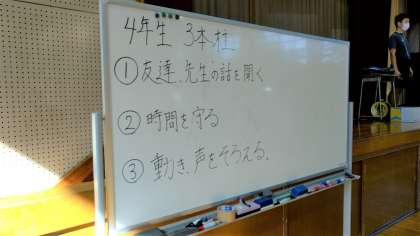 4年生 3本柱
①友達、先生の話を聞く
②時間を守る
③動き、声をそろえる。